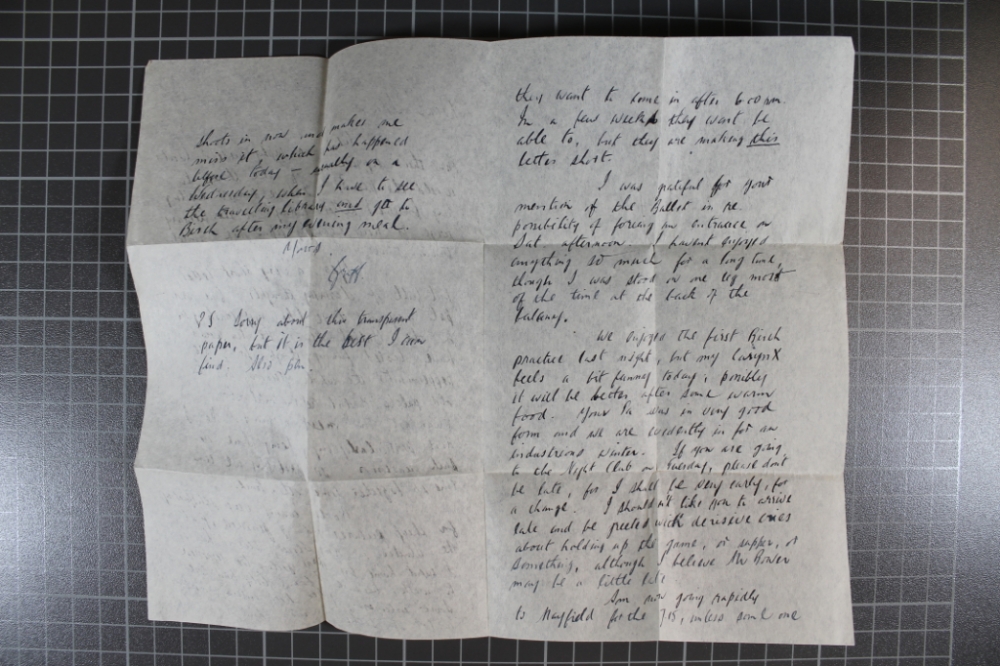 they want to come in after 6.00 pm.
In a few weeks they wont be
able to, but they are making this
letter short.
I was grateful for your
mention of the Ballet in re
possibility of forcing an entrance on
Sat. afternoon. I havent enjoyed
anything so much for a long time,
though I was stood on one leg most
of the time at the back of the
balcony.
We enjoyed the first Birch
practice last night, but my larynx
feels a bit funny today; possibly
it will be better after some warm
food. Your Pa was in very good
form and we are evidently in for an
industrious winter. If you are going
to the Night Club on Tuesday, please dont
be late, for I shall be very early, for
a change. I shouldn't like you to arrive
late and be greeted with derisive cries
about holding up the game, or supper, or
something, although I believe Mr Bower
may be a little late
Am now going rapidly
to Mayfield for the 7.15, unless some one
shoots in now and makes me
miss it - which has happened
before today - usually on a
Wednesday, when I have to see
the travelling library and get to
Birch after my evening meal.
PS Sorry about this transparent
paper, but it is the best I can
find. This pen.